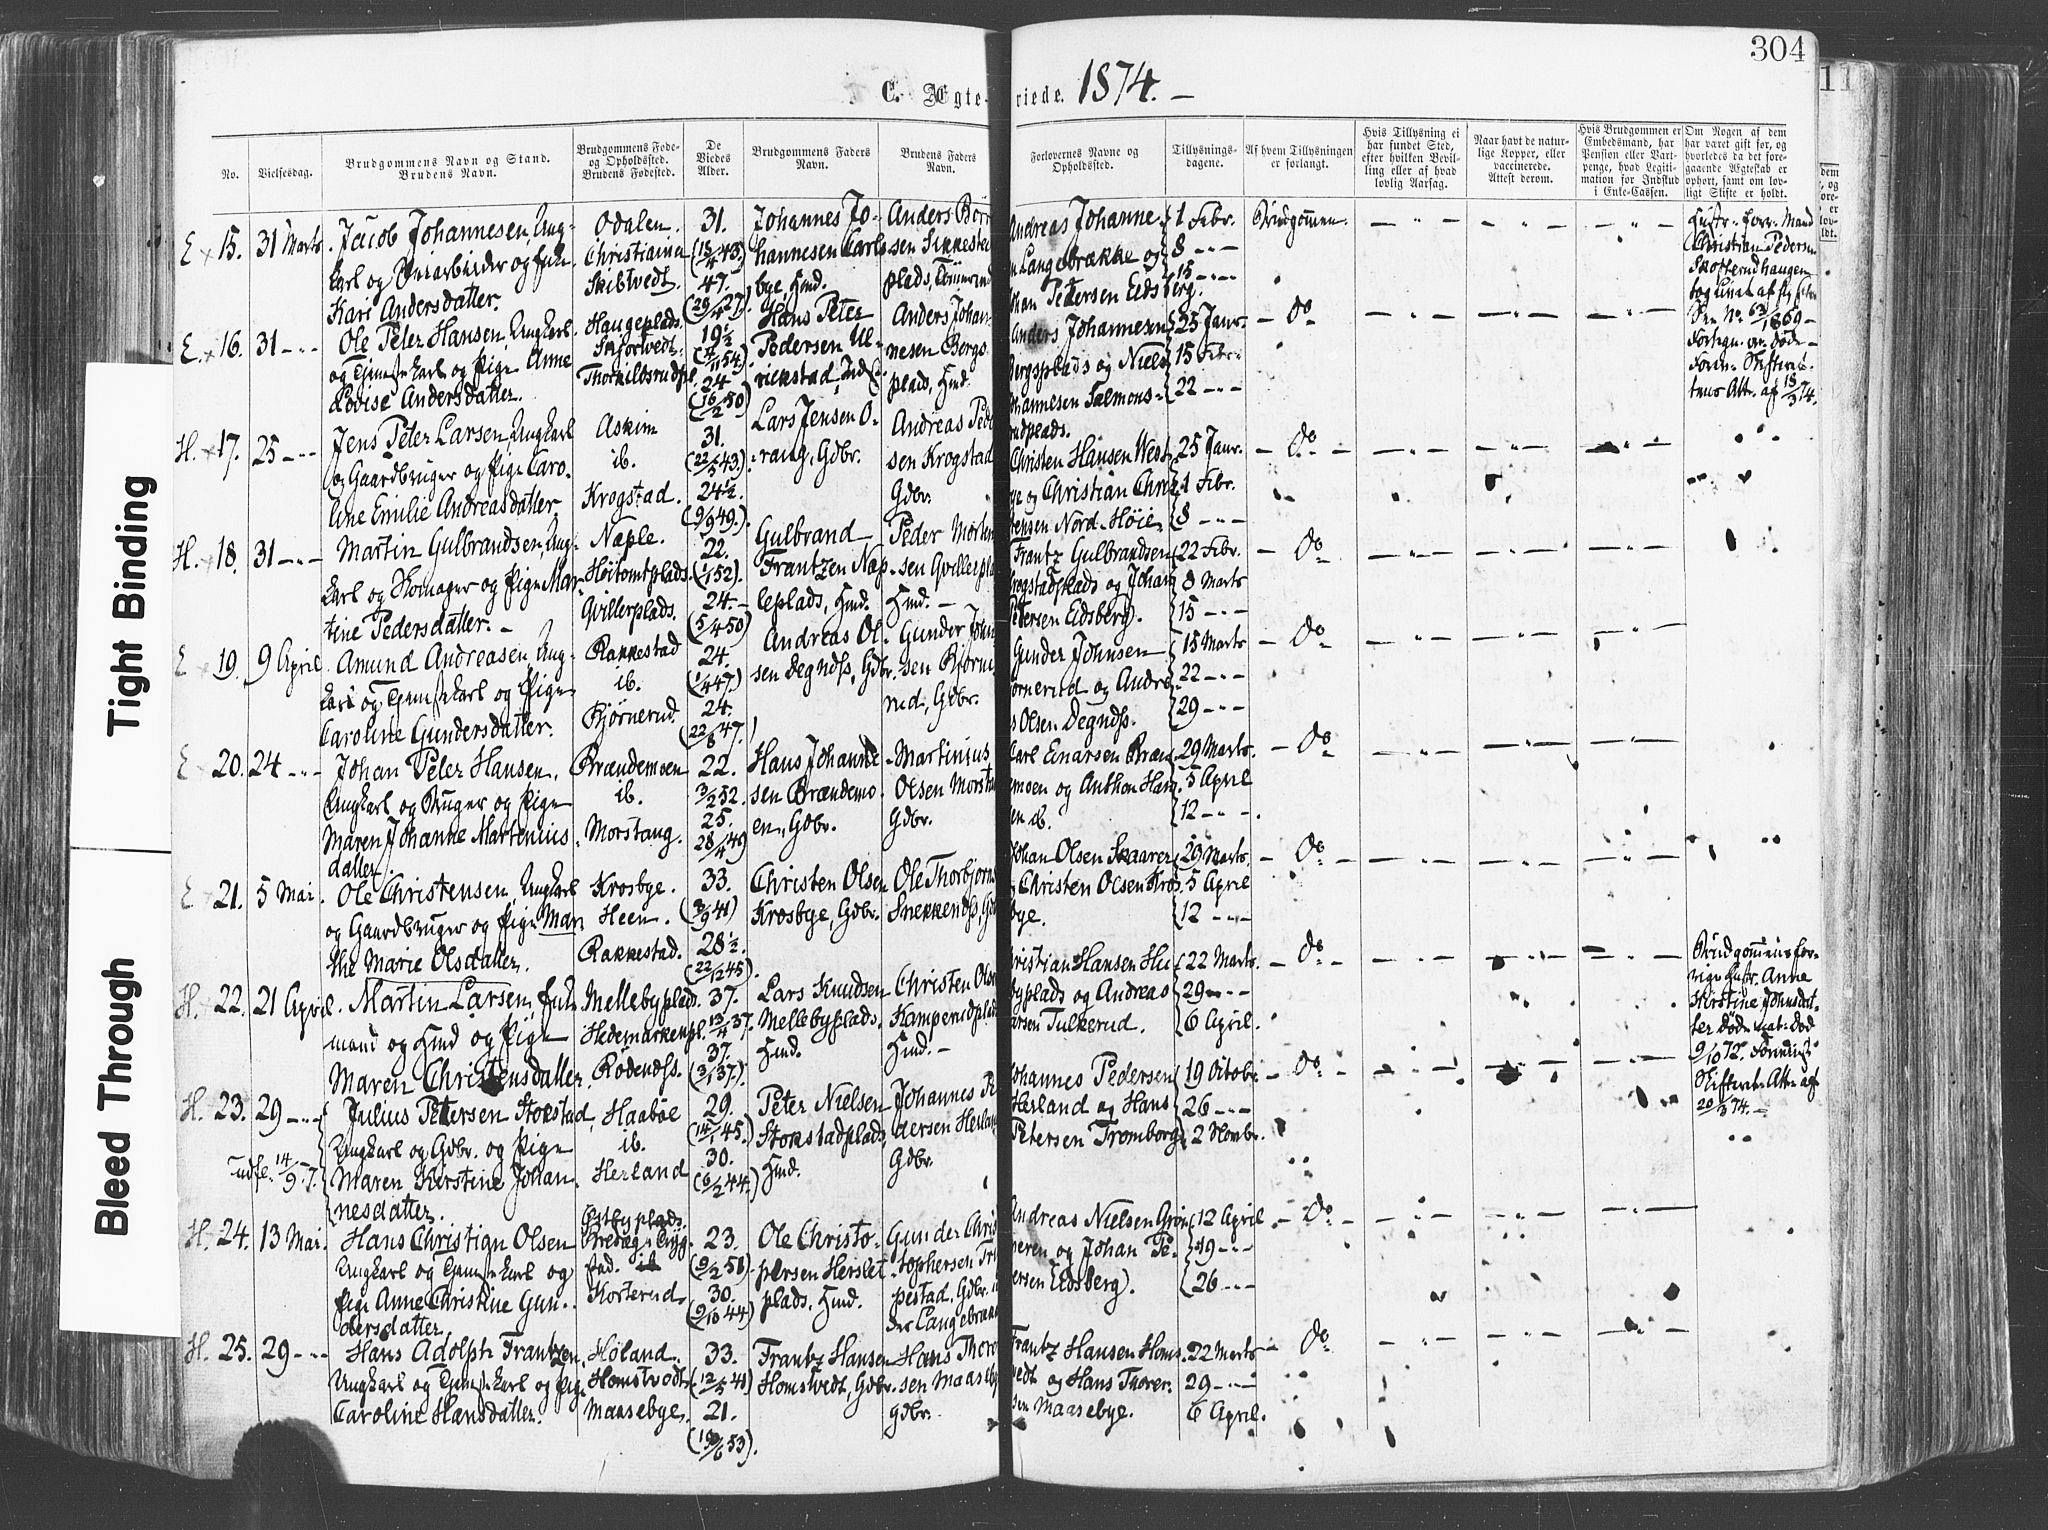 304
11
C. Ægte- viede. 1874. —
No.
Vielsesdag.
Brudgommens Navn og Stand.
Brudens Navn.
Brudgommens Føde-
og Opholdssted.
Brudens Fødested.
De
Viedes
Alder.
Brudgommens Faders
Navn.
Brudens Faders
Navn.
Forlovernes Navne og
Opholdssted.
Tillysnings-
dagene.
Af hvem Tillysningen
er forlangt.
Hvis Tillysning ei
har fundet Sted,
efter hvilken Bevil-
ling eller af hvad
lovlig Aarsag.
Naar havt de natur-
lige Kopper, eller
vaccinerede.
Attest derom.
Hvis Brudgommen er
Embedsmand, har
Pension eller Vart-
penge, hvad Legiti-
mation for Indskud
i Enke-Cassen.
Om Nogen af dem
har været gift før, og
hvorledes da det fore-
gaaende Ægteskab er
ophørt, samt om lov-
ligt Skifte er holdt.
Tight Binding
Bleed Through
E 15. 31 Marts
Jacob Johannesen, Ung-
karl og
Kari Andersdatter.
Odalen.
Christiania
Skibtvedt.
31.
(13/4 43.)
47.
(29/4 27)
Johannes Jo-
hannesen Carls-
bye, Hmd.
Anders Børre-
sen Sikkesta
plads,
Andreas Johanne-
n Langebrække og
Johan Petersen Edsberg.
1 Febr.
8 — " —
15 — " —
Brudgommen.
Enkefr. forr. Mand
Christian Pedersen
No. 63/1869 —
18/3 74.
E. 16. 31 — " —
Ole Peter Hansen, Ungkarl
og Tjenestekarl og Pige Anne
Lovise Andersdatter.
Haugeplads.
Skjørvedt.
Thorkildsrudpl.
19½
(4/11 54.)
24
(16/2 50)
Hans Peter
Pedersen Ul-
rickstad, Ind
Anders Johan-
nesen Bergs-
plads, Hmd.
Anders Johannesen
Bergsplads og Niels
Johannesen Salmons-
rudplads.
25 Janr.
15 Febr.
22 — " —
— Do —
H. 17. 25 — " —
Jens Peter Larsen, Ungkarl
og Gaardbruger og Pige Caro-
line Emilie Andreasdatter.
Askim
ib.
Krogstad.
31.
(22/5 43.)
24½.
(9/9 49.)
Lars Jensen O-
rang, Gdbr.
Andreas Peder
sen Krogstad
Gdbr.
Christen Hansen West-
bye og Christian Chri-
stensen Nord-Høie
25 Janr.
1 Febr.
8 — " —
— Do —
H. 18. 31 — " —
Martin Gulbrandsen, Ung-
karl og Skomager og Pige Mar-
tine Pedersdatter. —
Næple.
Høitomtplads.
Gvillerplads.
22.
(1/1 52).
24. —
(5/4 50)
Gulbrand
Frantzen Næp-
leplads, Hmd.
Peder Morten
sen Gvillerpla
Hmd. —
Frantz Gulbrandsen
Krogstadplads og Johan
Petersen Edsberg).
22 Febr.
8 Marts
15 — " —
— Do —
E 19. 9 April.
Amund Andreasen, Ung-
karl og Tjenestekarl og Pige
Caroline Gundersdatter.
Rakkestad
ib.
Bjørnerud.
24.
(1/4 47.)
24.
(22/8 47.)
Andreas Ol-
sen Degnds, Gdbr.
Gunder John
sen Bjørne
rud, Gdbr.
Gunder Johnsen
Bjørnerud og Andre-
as Olsen Degnds.
15 Marts
22 — " —
29 — " —
— Do —
E 20. 24 — " —
Johan Peter Hansen,
Ungkarl og Bruger og Pige
Maren Johanne Martinius-
datter.
Brændemoen
ib.
Morstaug.
22.
3/2 52.
25.
28/4 49
Hans Johanne-
sen Brændemo-
en, Gdbr.
Martinius
Olsen Morsta
Gdbr.
Carl Enarsen Bræn-
demoen og Anthon Han-
sen ib.
29 Marts.
5 April
12 — " —
— Do —
E 21. 5 Mai.
Ole Christensen, Ungkarl
og Gaardbruger og Pige Mar-
the Marie Olsdatter.
Krosbye.
Heen.
Rakkestad.
33.
(3/9 41)
28½.
(22/12 45)
Christen Olsen
Krosbye, Gdbr.
Ole Thorbjørns
Snekkends, Gd
Johan Olsen Skaarer
Christen Olsen Kros-
bye.
29 Marts.
5 April
12 — " —
— Do —
H 22. 21 April.
Martin Larsen, Enke-
mand og Hmd og Pige
Maren Christensdatter.
Mellebyplads.
Hedemarkenpl.
Rødends.
37.
13/4 37.
37.
(3/1 37).
Lars Knudsen
Mellebyplads.
Hmd.
Christen Olsen
Kamperudplad
Hmd. —
Christian Hansen Hu-
byplads og Andreas
Larsen Tulkerud.
22 Marts.
29 — " —
6 April.
— Do —
Brudgommens for-
rige Hustr. Anne
Kirstine Johnsdat-
ter døde
9/10 72.
Skifteret Att. af
20/3 74. —
H. 23. 29 — " —
Udfl. 14/9 -7.
Julius Petersen Stokstad,
Ungkarl og Gdbr. og Pige
Maren Kirstine Johan-
nesdatter.
Haabøl
ib.
Herland
29.
(14/1 45.)
30.
(6/2 44.)
Peter Nielsen
Stokstadplads
Hmd.
Johannes Pe
dersen Herland
Gdbr.
Johannes Pedersen
Herland og Hans
Petersen Tromborg.
19 Octobr.
26 — " —
2 Novbr.
— Do —
H. 24. 13 Mai.
Hans Christian Olsen
Ungkarl og Tjenestekarl og
Pige Anne Christine Gun-
dersdatter
Østbyplads.
Korterud.
23.
(9/2 51)
30.
(9/10 44)
Ole Christo-
phersen Herslet-
plads, Hmd.
Gunder Chris
tophersen Tra
pestad, Gdbr.
der Langebrække
Andreas Nielsen Grøn
neren og Johan Pe-
tersen (Edsberg).
12 April
19 — " —
26 — " —
— Do —
H. 25. 29 — " —
Hans Adolph Frantzen,
Ungkarl og Tjenestekarl og Pige
Caroline Hansdatter.
Høland.
Homstvedt
Maasebye.
33.
(12/5 41)
21.
(19/6 53).
Frantz Hansen
Homstvedt, Gdbr.
Hans Thore
sen Maaseby
Gdbr.
Frantz Hansen Homs-
tvedt og Hans Thorer-
sen Maasebye.
22 Marts
29 — " —
6 April.
— Do —